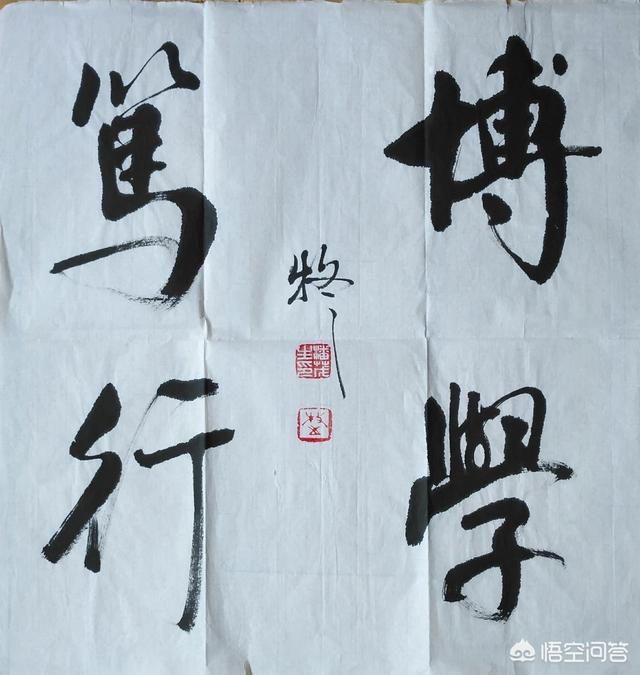 博學
篤行
悟空问答